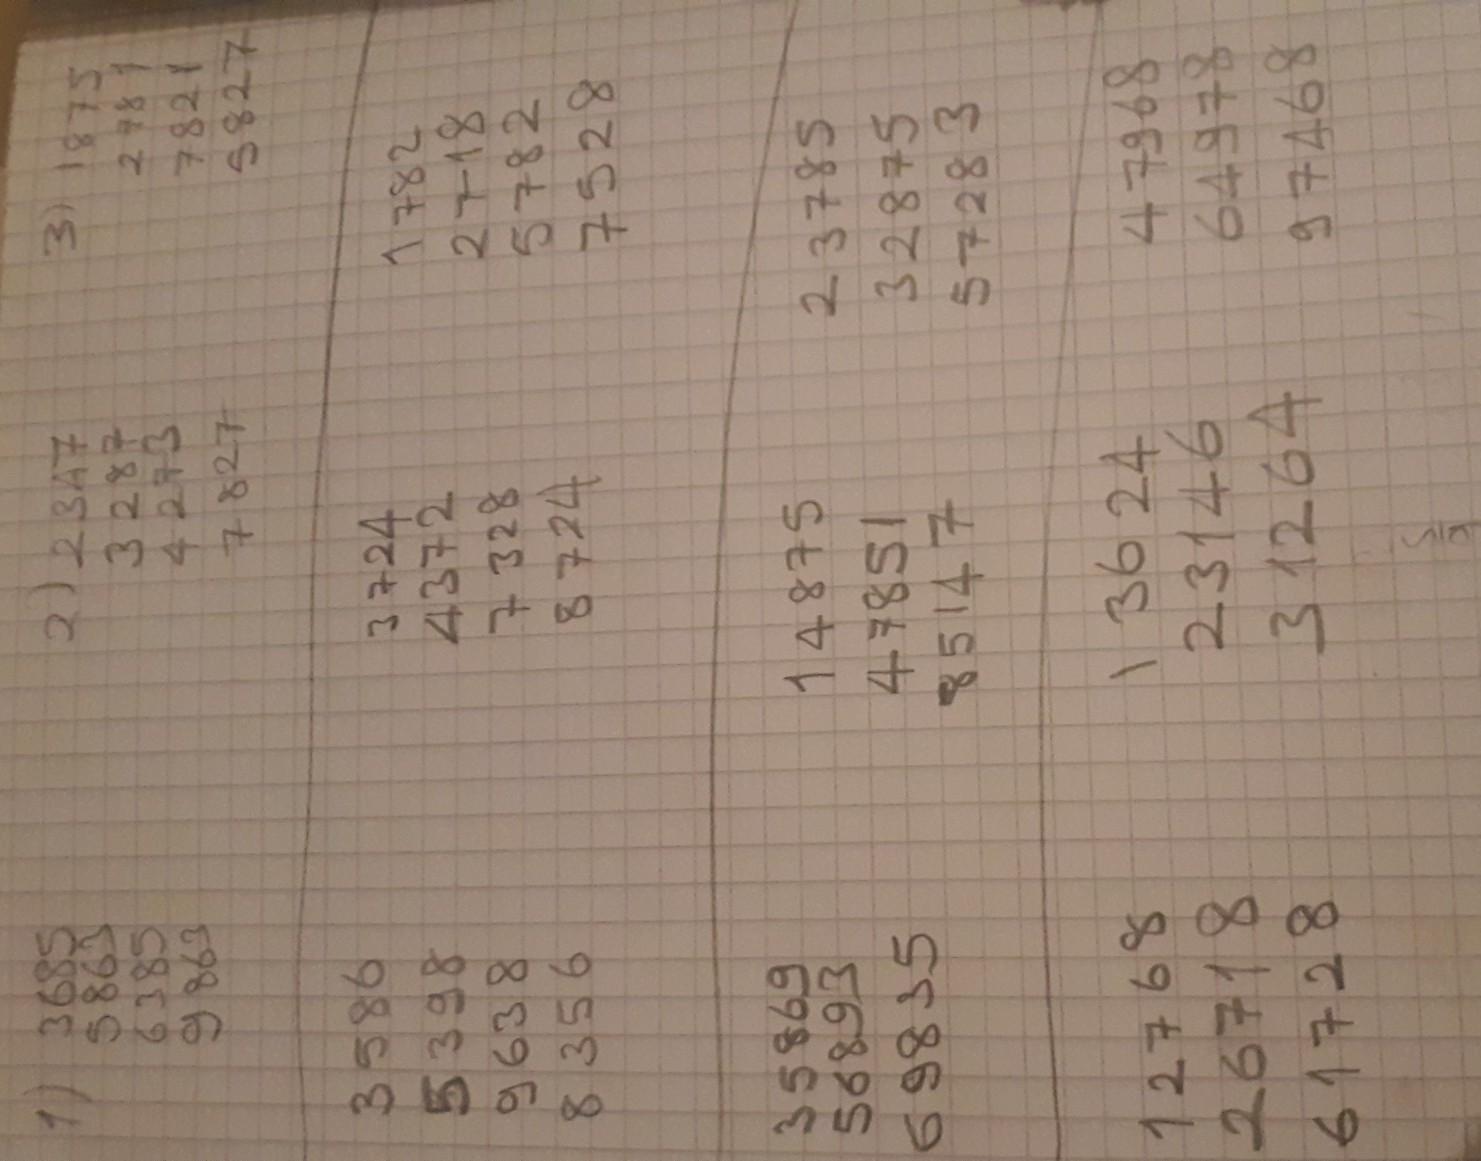 1) 3685 2) 2347 3) 1875
5863 3287 2781
6385 4273 7821
9863 7827 5827
3586 3724 1782
5398 4372 2718
9638 7328 5782
8356 8724 7528
35869 14875 23785
56893 47851 32875
69835 85147 57283
12768 13624 47968
26718 23146 64978
61728 31264 97468